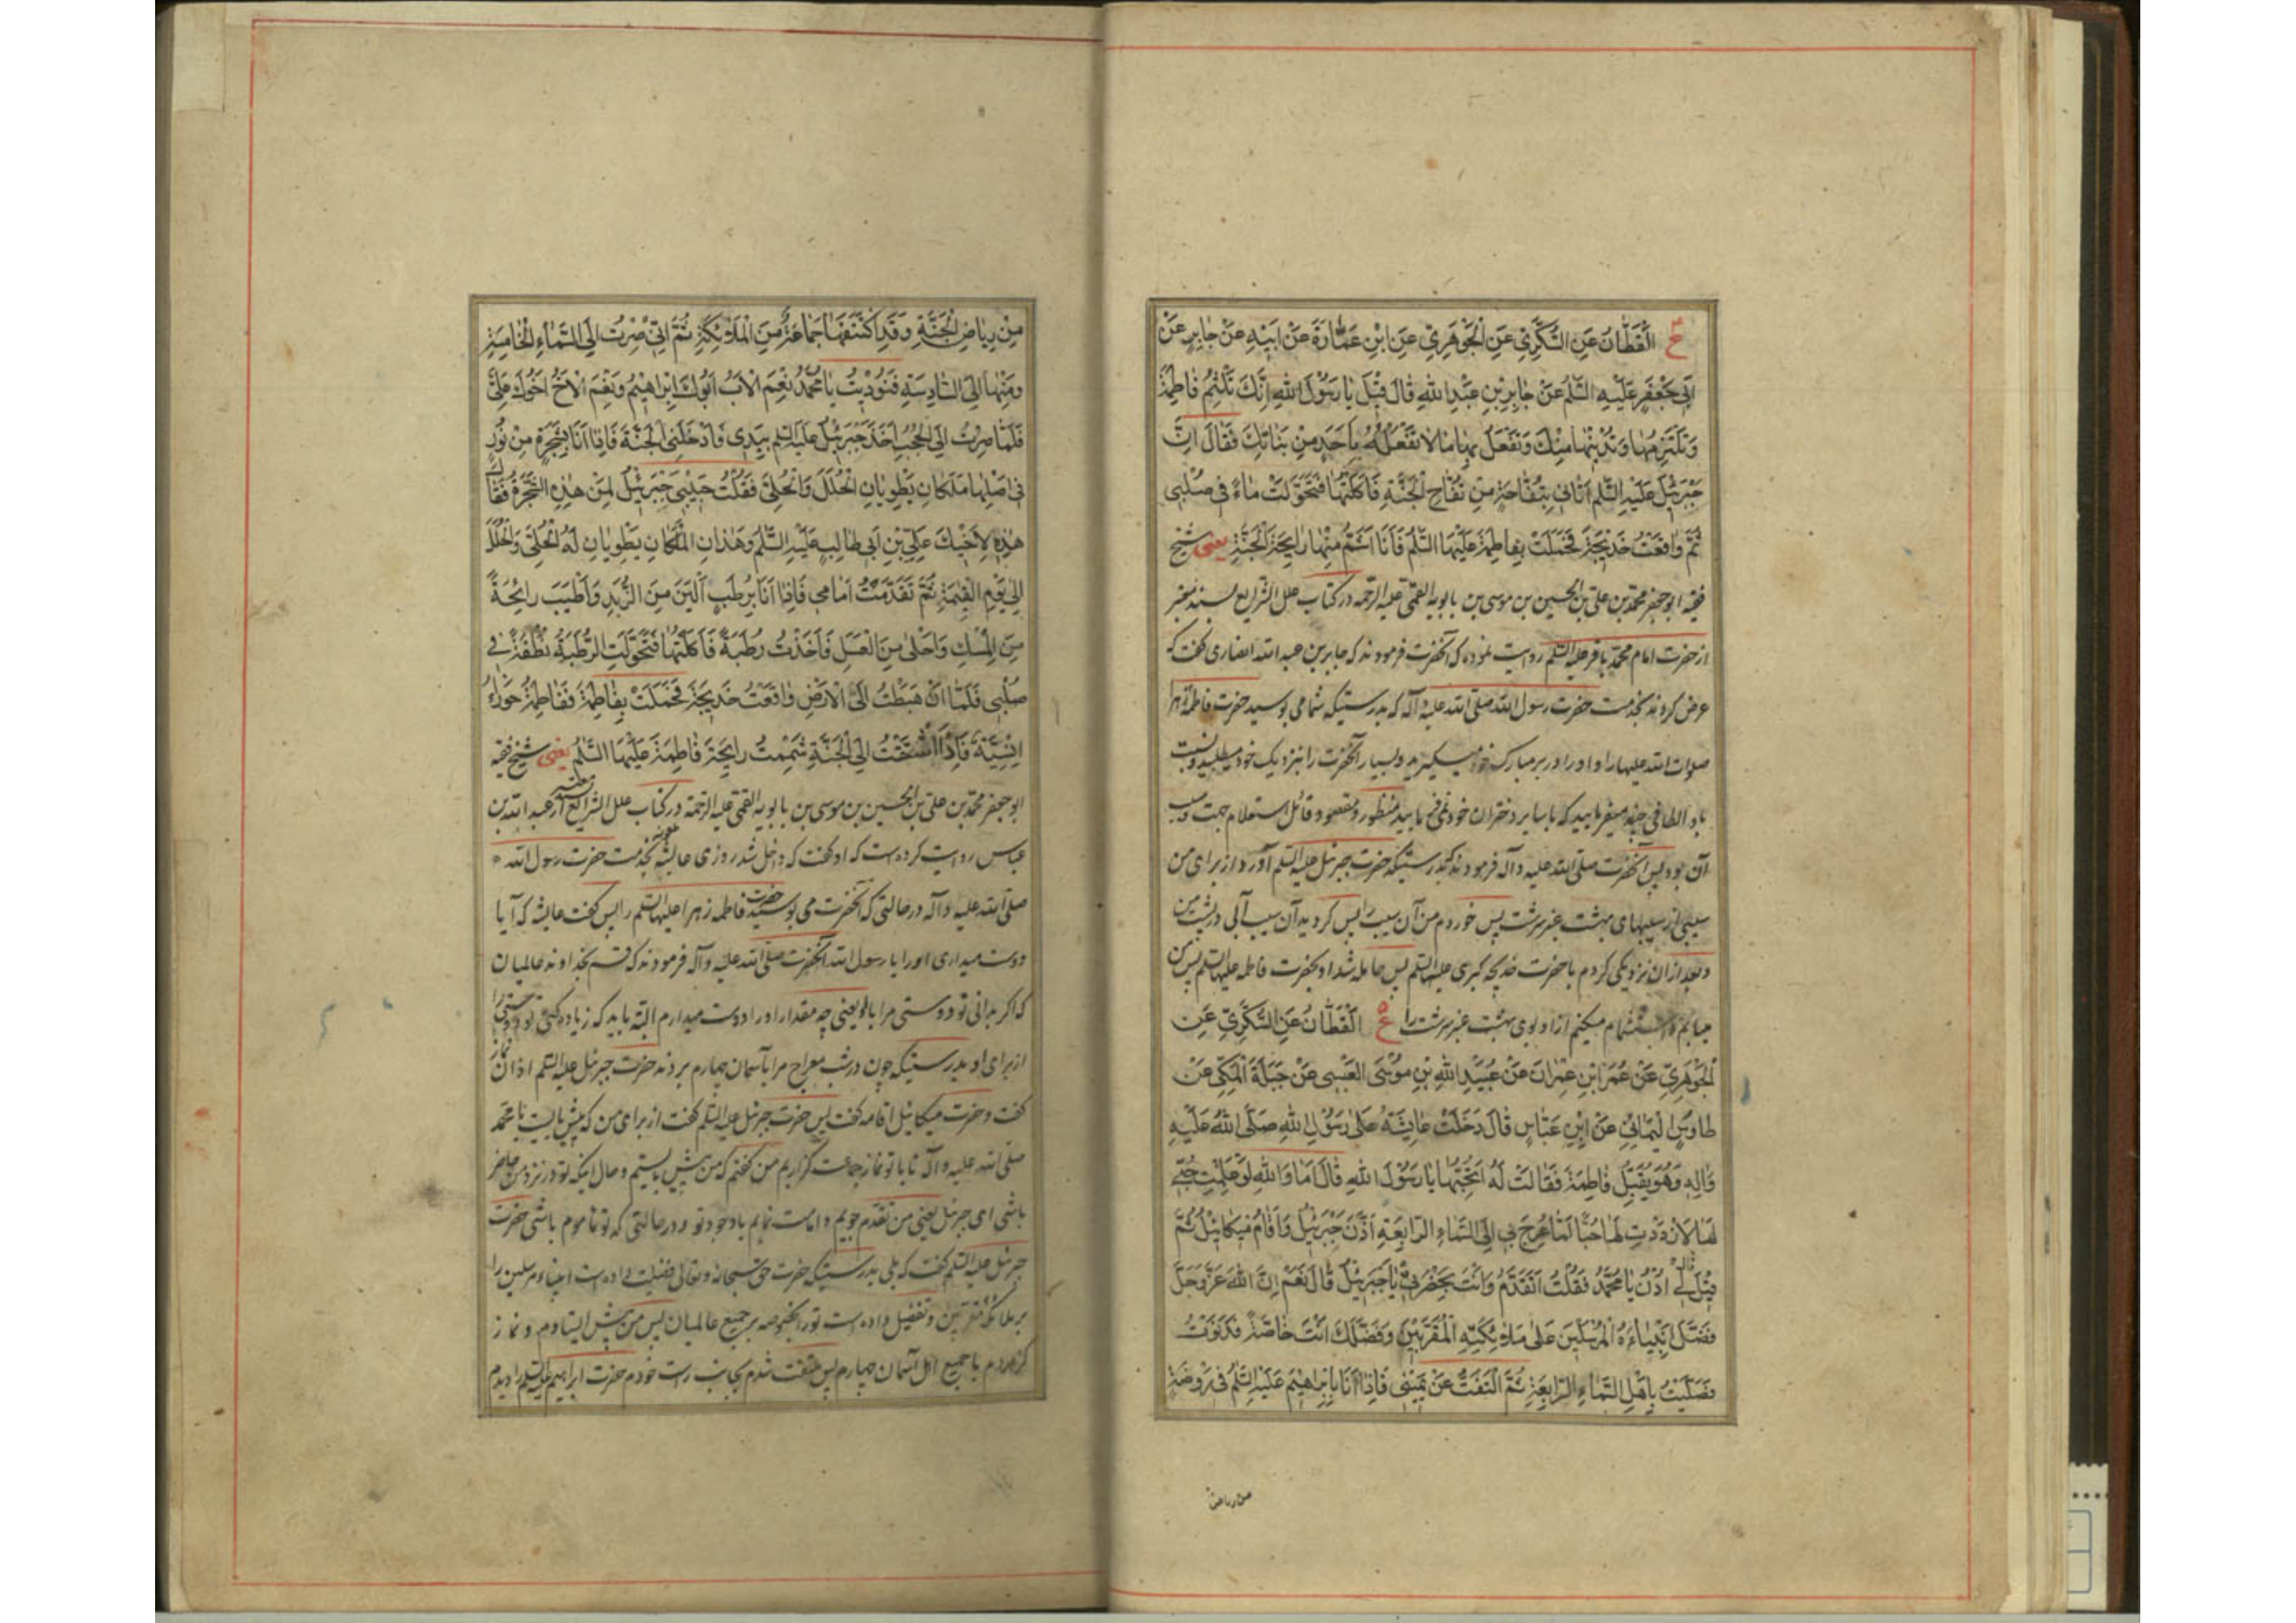 ع القَطّانُ عَنِ السُّكَّرِيّ عَنِ الْجَوْهَرِيّ عَنِ ابْنِ عَمّارَةَ عَنْ اَبيهِ عَنْ جابِرٍ عَنْ
اَبي جَعْفَرٍ عَلَيْهِ السَّلامُ عَنْ جابِرِ بْنِ عَبْدِ اللهِ قالَ قيلَ يا رَسُولَ اللهِ اِنَّكَ تَلْثِمُ فاطِمَةَ
وَتَلْتَزِمُها وَتُدْنيها مِنْكَ وَتَفْعَلُ بِها ما لا تَفْعَلُهُ بِاَحَدٍ مِنْ بَناتِكَ فَقالَ اِنَّ
جَبْرَئيلَ عَلَيْهِ السَّلامُ اَتاني بِتُفّاحَةٍ مِنْ تُفّاحِ الْجَنَّةِ فَاَكَلْتُها فَتَحَوَّلَتْ ماءً في صُلْبي
ثُمَّ واقَعْتُ خَديجَةَ فَحَمَلَتْ بِفاطِمَةَ عَلَيْهَا السَّلامُ فَاَنَا اَشَمُّ مِنْها رايِحَةَ الْجَنَّةِ يعنى شيخ
فقيه ابو جعفر محمد بن على بن الحسين بن موسى بن بابويه القمى عليه الرحمه در كتاب علل الشرايع بسند معتبر
از حضرت امام محمد باقر عليه السلم روايت نموده كه آنحضرت فرمودند كه جابر بن عبد الله انصارى گفت كه
عرض كردند بخدمت حضرت رسول الله صلى الله عليه وآله كه بدرستيكه شما مى بوسيد حضرت فاطمه زهرا
صلوات الله عليها را و او را در بر مبارك خود ميگيريد و بسيار آنحضرت را بنزديك خود ميطلبيد و نسبت
باو الطافى چند ميفرماييد كه با ساير دختران خود نمى فرماييد منظور و مقصود قائل استعلام جهت و سبب
آن بود پس آنحضرت صلى الله عليه وآله فرمودند كه بدرستيكه حضرت جبرئيل عليه السلم آورد از براى من
سيبى از سيبهاى بهشت عنبر سرشت پس خوردم من آن سيب را پس گرديد آن سيب آبى در پشت من
و بعد از آن نزديكى كردم با حضرت خديجه كبرى عليها السلم پس حامله شد او بحضرت فاطمه عليها السلم پس من
مييابم و استشمام ميكنم از او بوى بهشت عنبر سرشت را ع القَطّانُ عَنِ السُّكَّرِيّ عَنِ
الْجَوْهَرِيّ عَنْ عُمَرَ بْنِ عِمْرانَ عَنْ عُبَيْدِ اللهِ بْنِ مُوسَى الْعَبْسي عَنْ جَبَلَةَ الْمَكّي عَنْ
طاوُسٍ الْيَمانيّ عَنِ ابْنِ عَبّاسٍ قالَ دَخَلَتْ عايِشَةُ عَلى رَسُولِ اللهِ صَلَّى اللهُ عَلَيْهِ
وَآلِهِ وَهُوَ يُقَبِّلُ فاطِمَةَ فَقالَتْ لَهُ اَتُحِبُّها يا رَسُولَ اللهِ قالَ اَما وَاللهِ لَوْ عَلِمْتِ حُبّي
لَها لَازْدَدْتِ لَها حُبًّا لَمّا عُرِجَ بي اِلَى السَّماءِ الرّابِعَةِ اَذَّنَ جَبْرَئيلُ وَاَقامَ ميكائيلُ ثُمَّ
قيلَ لي اُدْنُ يا مُحَمَّدُ فَقُلْتُ اَتَقَدَّمُ وَاَنْتَ بِحَضْرَتي يا جَبْرَئيلُ قالَ نَعَمْ اِنَّ اللهَ عَزَّ وَجَلَّ
فَضَّلَ اَنْبِياءَهُ الْمُرْسَلينَ عَلى مَلائِكَتِهِ الْمُقَرَّبينَ وَفَضَّلَكَ اَنْتَ خاصَّةً فَدَنَوْتُ
فَصَلَّيْتُ بِاَهْلِ السَّماءِ الرّابِعَةِ ثُمَّ الْتَفَتُّ عَنْ يَميني فَاِذا اَنَا بِاِبْراهيمَ عَلَيْهِ السَّلامُ في رَوْضَةٍ
من رياض
مِنْ رِياضِ الْجَنَّةِ وَقَدِ اكْتَنَفَها جَماعَةٌ مِنَ الْمَلائِكَةِ ثُمَّ اِنّي صِرْتُ اِلَى السَّماءِ الْخامِسَةِ
وَمِنْها اِلَى السّادِسَةِ فَنُوديتُ يا مُحَمَّدُ نِعْمَ الْاَبُ اَبُوكَ اِبْراهيمُ وَنِعْمَ الْاَخُ اَخُوكَ عَلِيٌّ
فَلَمّا صِرْتُ اِلَى الْحُجُبِ اَخَذَ جَبْرَئيلُ عَلَيْهِ السَّلامُ بِيَدي فَاَدْخَلَنِي الْجَنَّةَ فَاِذا اَنَا بِشَجَرَةٍ مِنْ نُورٍ
في اَصْلِها مَلَكانِ يَطْوِيانِ الْحُلَلَ وَالْحُلِيَّ فَقُلْتُ حَبيبي جَبْرَئيلُ لِمَنْ هذِهِ الشَّجَرَةُ فَقالَ
هذِهِ لِاَخيكَ عَلِيِّ بْنِ اَبي طالِبٍ عَلَيْهِ السَّلامُ وَهذانِ الْمَلَكانِ يَطْوِيانِ لَهُ الْحُلِيَّ وَالْحُلَلَ
اِلى يَوْمِ الْقِيمَةِ ثُمَّ تَقَدَّمْتُ اَمامي فَاِذا اَنَا بِرُطَبٍ اَلْيَنَ مِنَ الزُّبْدِ وَاَطْيَبَ رائِحَةً
مِنَ الْمِسْكِ وَاَحْلى مِنَ الْعَسَلِ فَاَخَذْتُ رُطَبَةً فَاَكَلْتُها فَتَحَوَّلَتِ الرُّطَبَةُ نُطْفَةً في
صُلْبي فَلَمّا اَنْ هَبَطْتُ اِلَى الْاَرْضِ واقَعْتُ خَديجَةَ فَحَمَلَتْ بِفاطِمَةَ فَفاطِمَةُ حَوْراءُ
اِنْسِيَّةٌ فَاِذَا اشْتَقْتُ اِلَى الْجَنَّةِ شَمِمْتُ رايِحَةَ فاطِمَةَ عَلَيْهَا السَّلامُ يعنى شيخ فقيه
ابو جعفر محمد بن على بن الحسين بن موسى بن بابويه القمى عليه الرحمة در كتاب علل الشرايع از عبد الله بن
عباس روايت كرده است كه او گفت كه داخل شد روزى عايشه بخدمت حضرت رسول الله
صلى الله عليه وآله در حالتى كه آنحضرت مى بوسيد حضرت فاطمه زهرا عليها السلم را پس گفت عايشه كه آيا
دوست ميدارى او را يا رسول الله آنحضرت صلى الله عليه وآله فرمودند كه قسم بخداوند عالميان
كه اگر بدانى تو دوستى مرا باو يعنى چه مقدار او را دوست ميدارم البته بايد كه زياده كنى تو دوستى را
از براى او بدرستيكه چون در شب معراج مرا بآسمان چهارم بردند حضرت جبرئيل عليه السلم اذان نماز
گفت و حضرت ميكائيل اقامه گفت پس حضرت جبرئيل عليه السلم گفت از براى من كه پيش بايست يا محمد
صلى الله عليه وآله تا با تو نماز جماعت گزاريم من گفتم كه من پيش بايستم و حال اينكه تو در نزد من حاضر
باشى اى جبرئيل يعنى من تقدم جويم و امامت نمايم باوجود تو و در حالتى كه تو ماموم باشى حضرت
جبرئيل عليه السلم گفت كه بلى بدرستيكه حضرت حق سبحانه وتعالى فضيلت داده است انبياء مرسلين را
بر ملائكه مقربين و تفضيل داده است تو را بخصوصه بر جميع عالميان پس من پيش ايستادم و نماز
گزاردم با جميع اهل آسمان چهارم پس ملتفت شدم بجانب راست خودم حضرت ابراهيم عليه السلم را ديدم